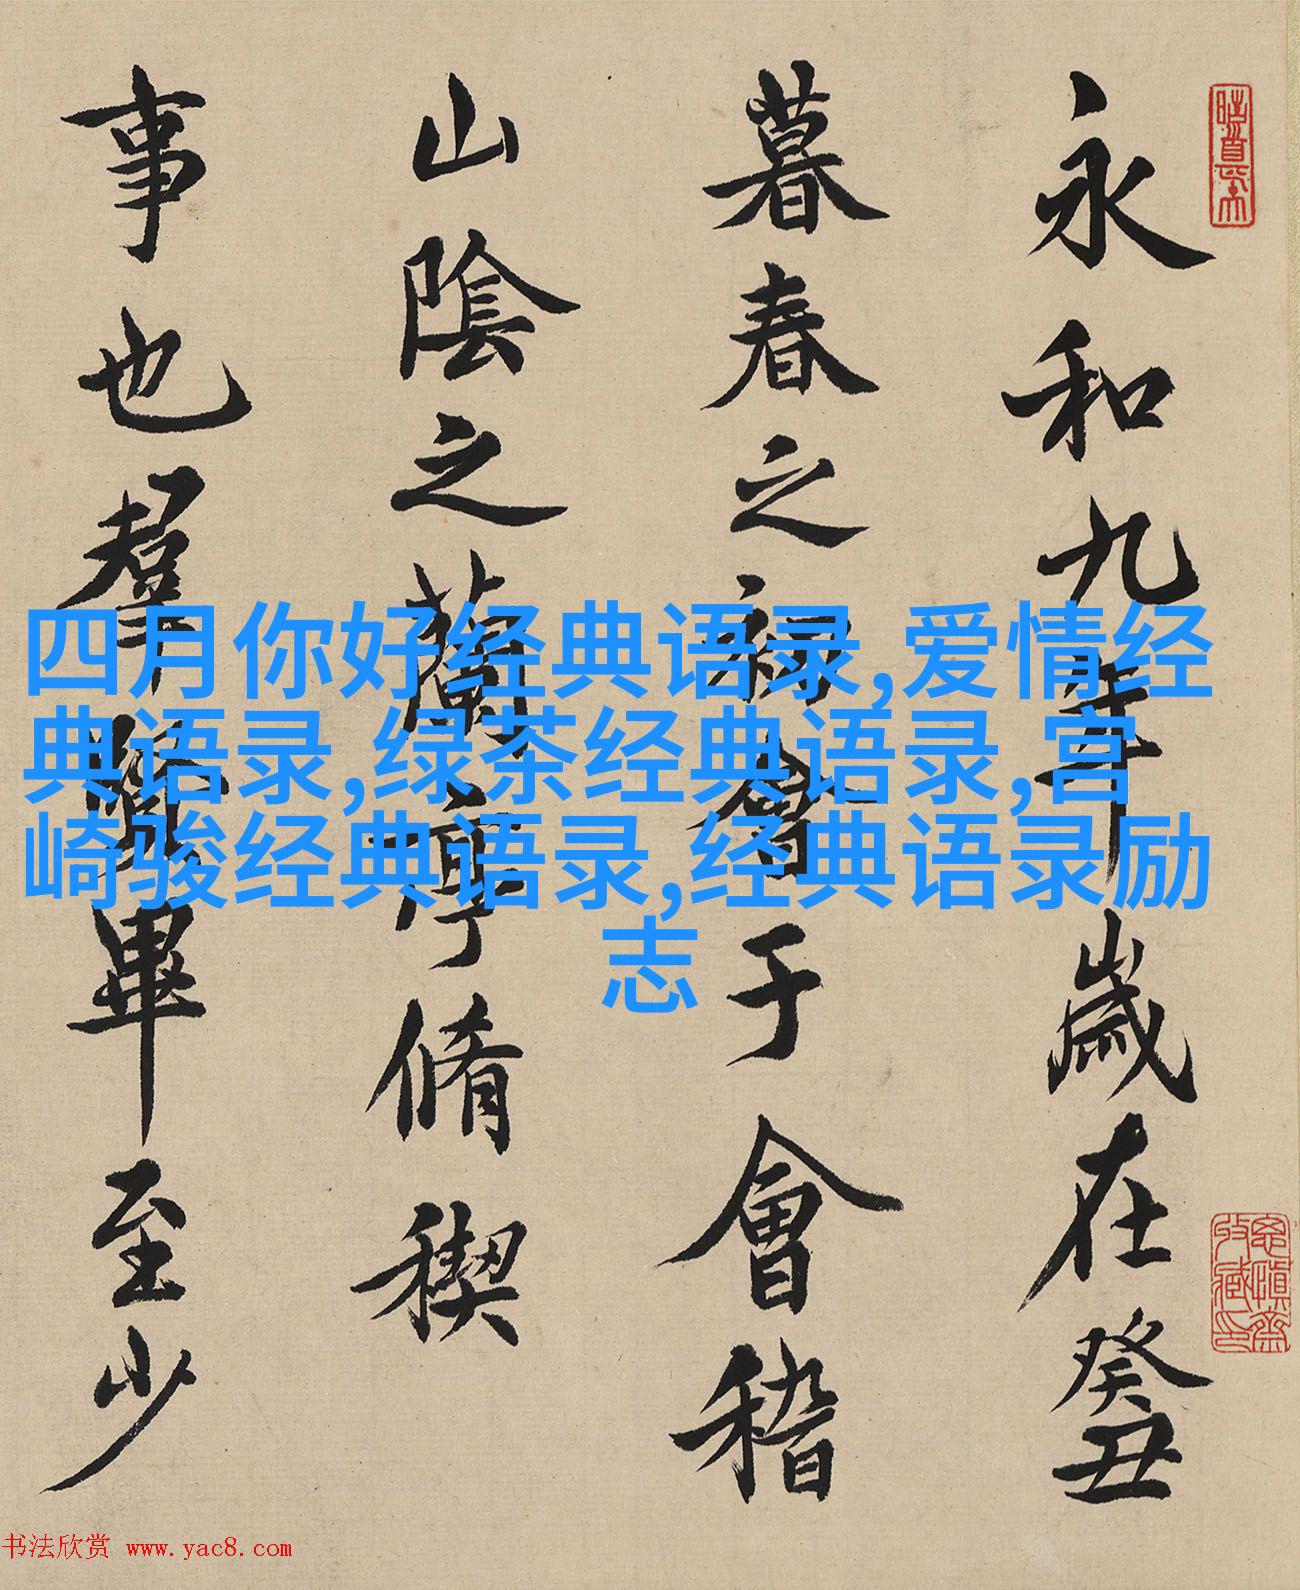 永和九年歲在癸丑
暮春之初會于會稽
山陰之蘭亭脩稧
事也羣賢畢至少
四月你好经典语录,爱情经
典语录,绿茶经典语录,宫
崎骏经典语录,经典语录励
志
书法欣赏 www.yac8.com